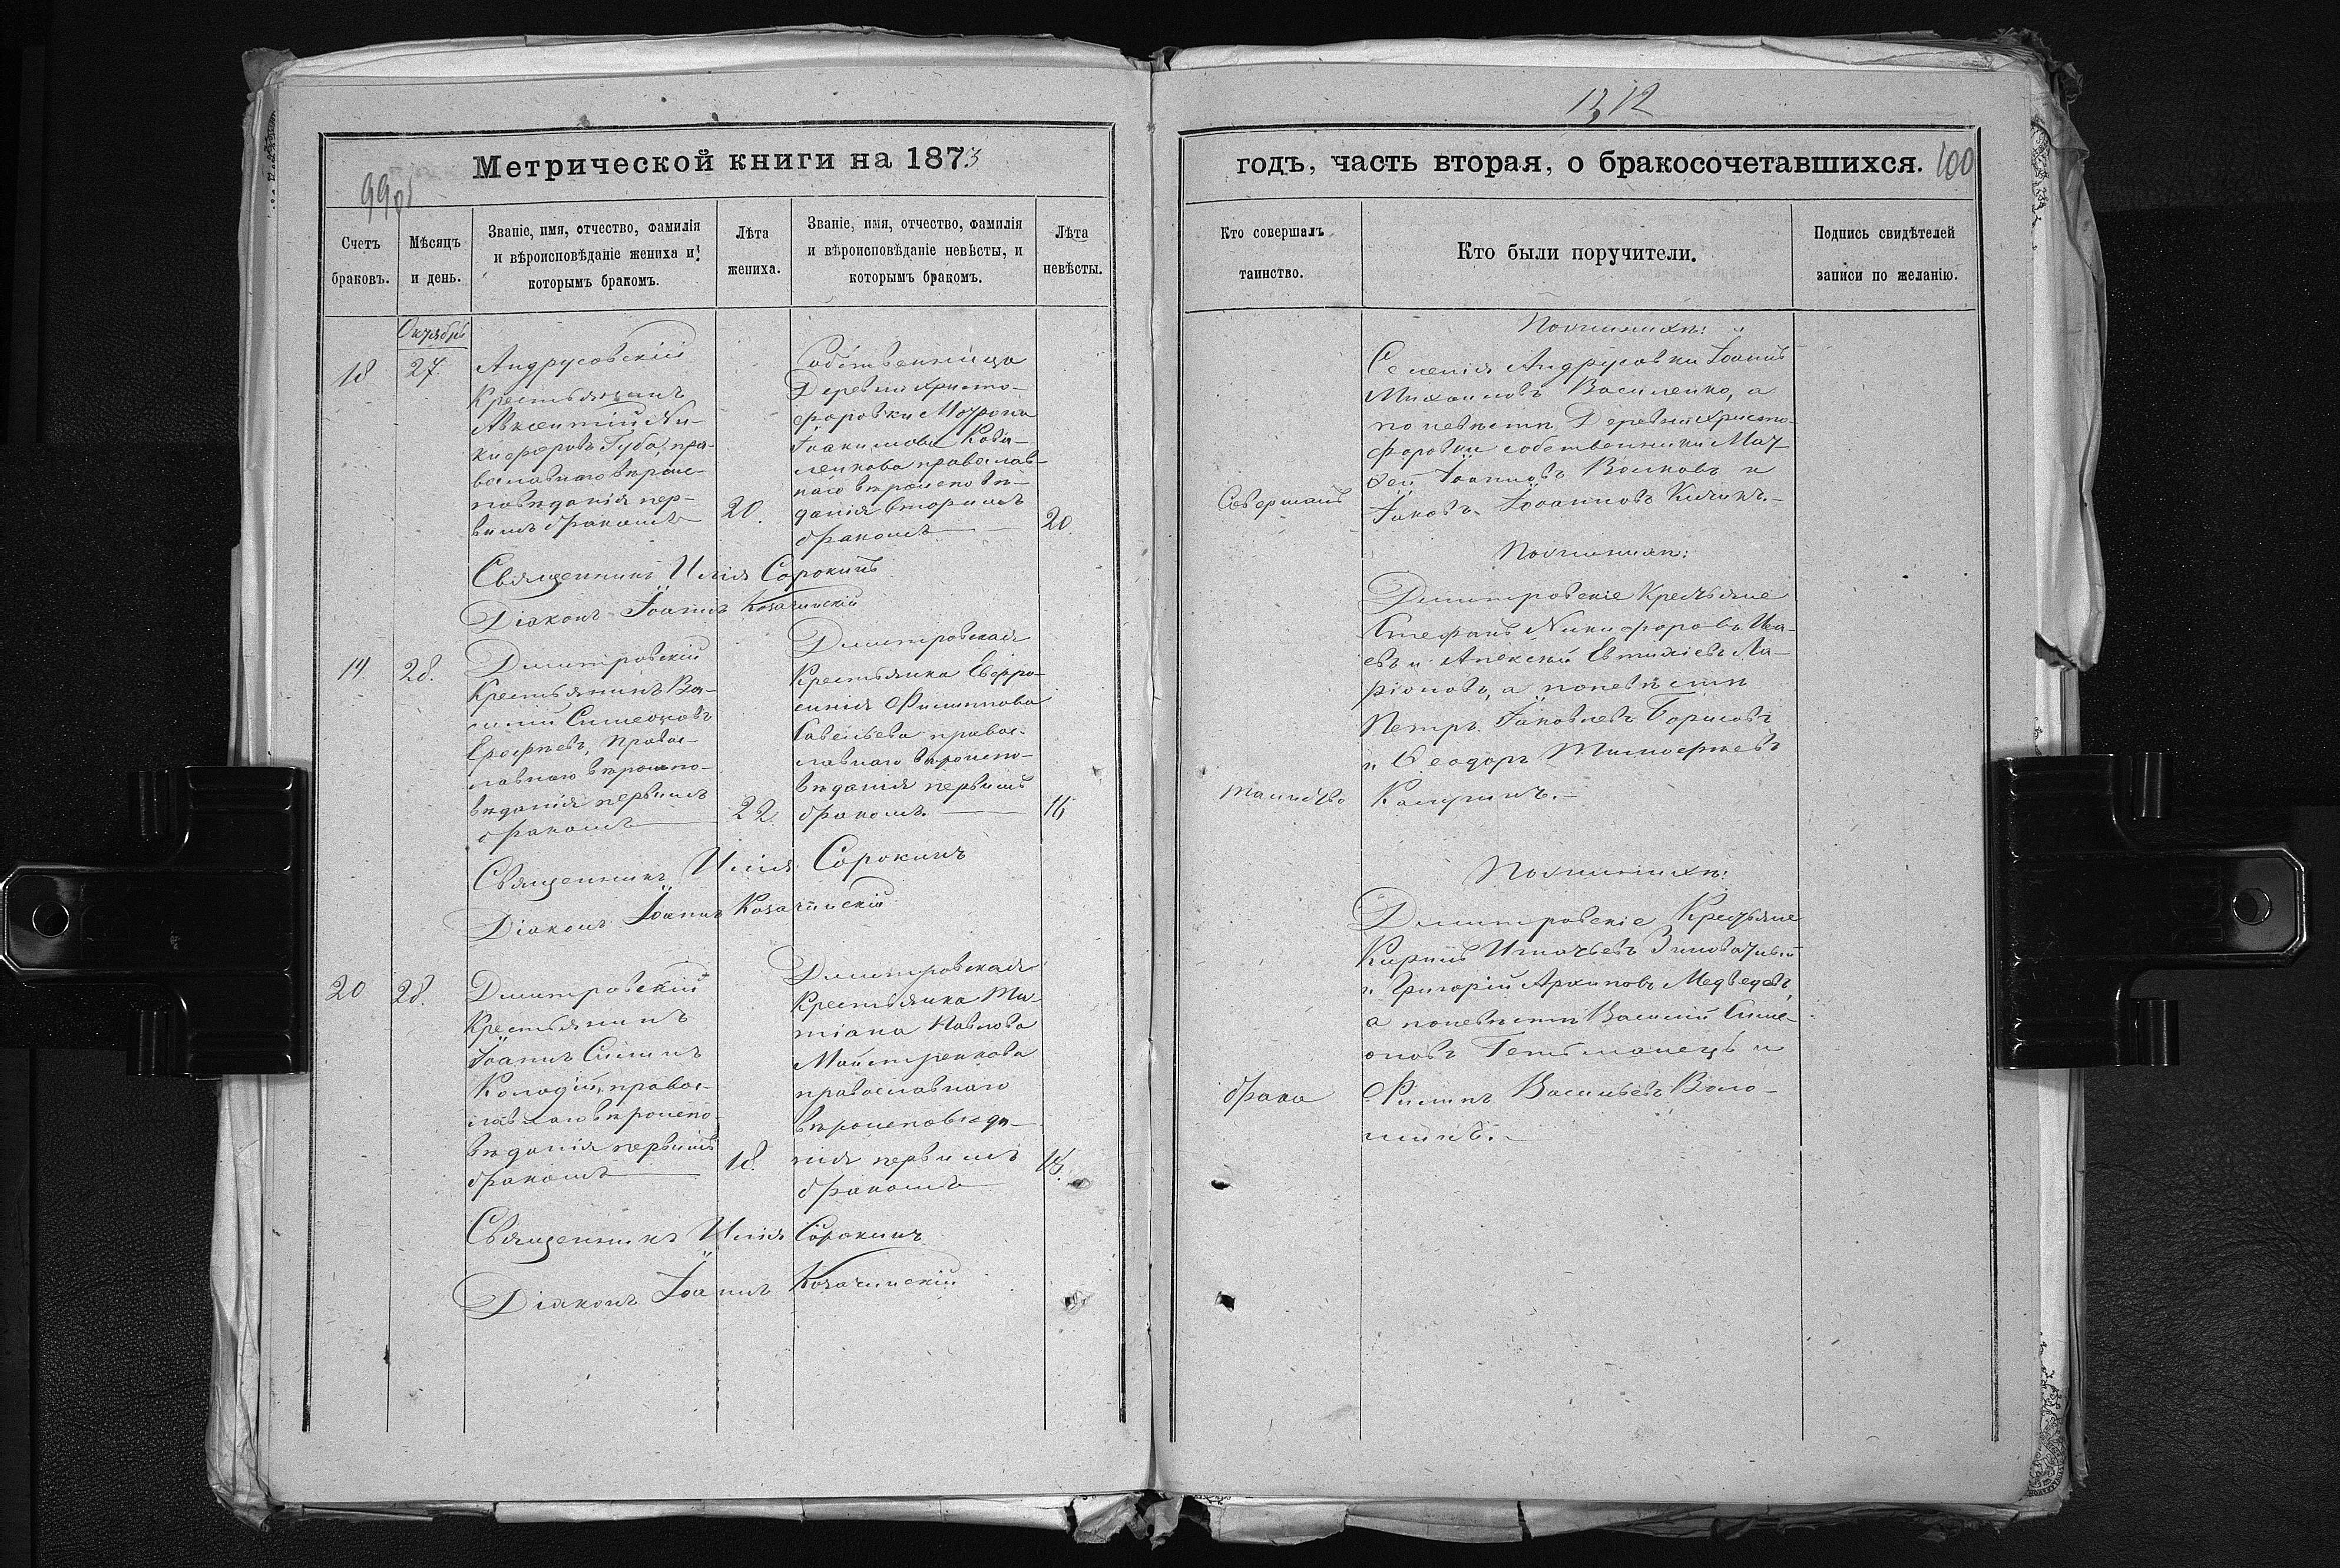 Метрической книги на 1873
99об
Счетъ браковъ.
Мѣсяцъ и день.
Званіе, имя, отчество, фамилія
и вѣроисповѣданіе жениха и
которымъ бракомъ.
Лѣта жениха.
Званіе, имя, отчество, фамилія
и вѣроисповѣданіе невѣсты, и
которымъ бракомъ.
Лѣта невѣсты.
Октябрь
18
27.
Андрусовскій
Крестьянинъ
Авксентій Ни-
кифоровъ Губа, пра-
вославнаго вѣроис-
повѣданія пер-
вымъ бракомъ
20.
Собственница
Деревни Христо-
форовки Мотрона
Іоакимова Кова-
ленкова православ-
наго вѣроисповѣ-
данія вторымъ
бракомъ
20.
Священникъ Илія Сорокинъ
Діаконъ Іоаннъ Козачинскій
19.
28.
Димитровскій
Крестьянинъ Ва-
силій Симеоновъ
Ерофѣевъ, правос-
лавнаго вѣроиспо-
вѣданія первымъ
бракомъ
22.
Димитровская
Крестьянка Евфро-
синія Филиппова
Савельева правос-
лавнаго вѣроиспо-
вѣданія первымъ
бракомъ.
16
Священникъ Илія Сорокинъ
Діаконъ Іоаннъ Козачинскій
20
28.
Димитровскій
Крестьянинъ
Іоаннъ Симинъ
Колодій, правос-
лавнаго вѣроиспо-
вѣданія первымъ
бракомъ
18.
Димитровская
Крестьянка Та-
тіана Павлова
Майстренкова
православнаго
вѣроисповѣда-
нія первымъ
бракомъ
18.
Священникъ Илія Сорокинъ
Діаконъ Іоаннъ Козачинскій
1312
годъ, часть вторая, о бракосочетавшихся.
100
Кто совершалъ
таинство.
Кто были поручители.
Подпись свидѣтелей
записи по желанію.
Совершалъ
таинство
брака
По женихѣ:
Селенія Андрусовки Іоаннъ
Михаиловъ Василенко, а
по невѣстѣ Деревни Христо-
форовки собственники Мат-
ѳей Іоанновъ Волковъ и
Іаковъ Іоанновъ Кичикъ.
По женихѣ:
Димитровскіе Крестьяне
Стефанъ Никифоровъ Иса-
евъ и Алексѣй Евтихіевъ Ла-
ріоновъ, а по невѣстѣ
Петръ Іаковлевъ Борисовъ
и Ѳеодоръ Тимоѳѣевъ
По женихѣ:
Димитровскіе Крестьяне
Кирилъ Игнатьевъ
и Григорій Архиповъ Медведевъ,
а по невѣстѣ Василій Симе-
оновъ Гетьманецъ и
Филипъ Васильевъ Воло-
шинъ.